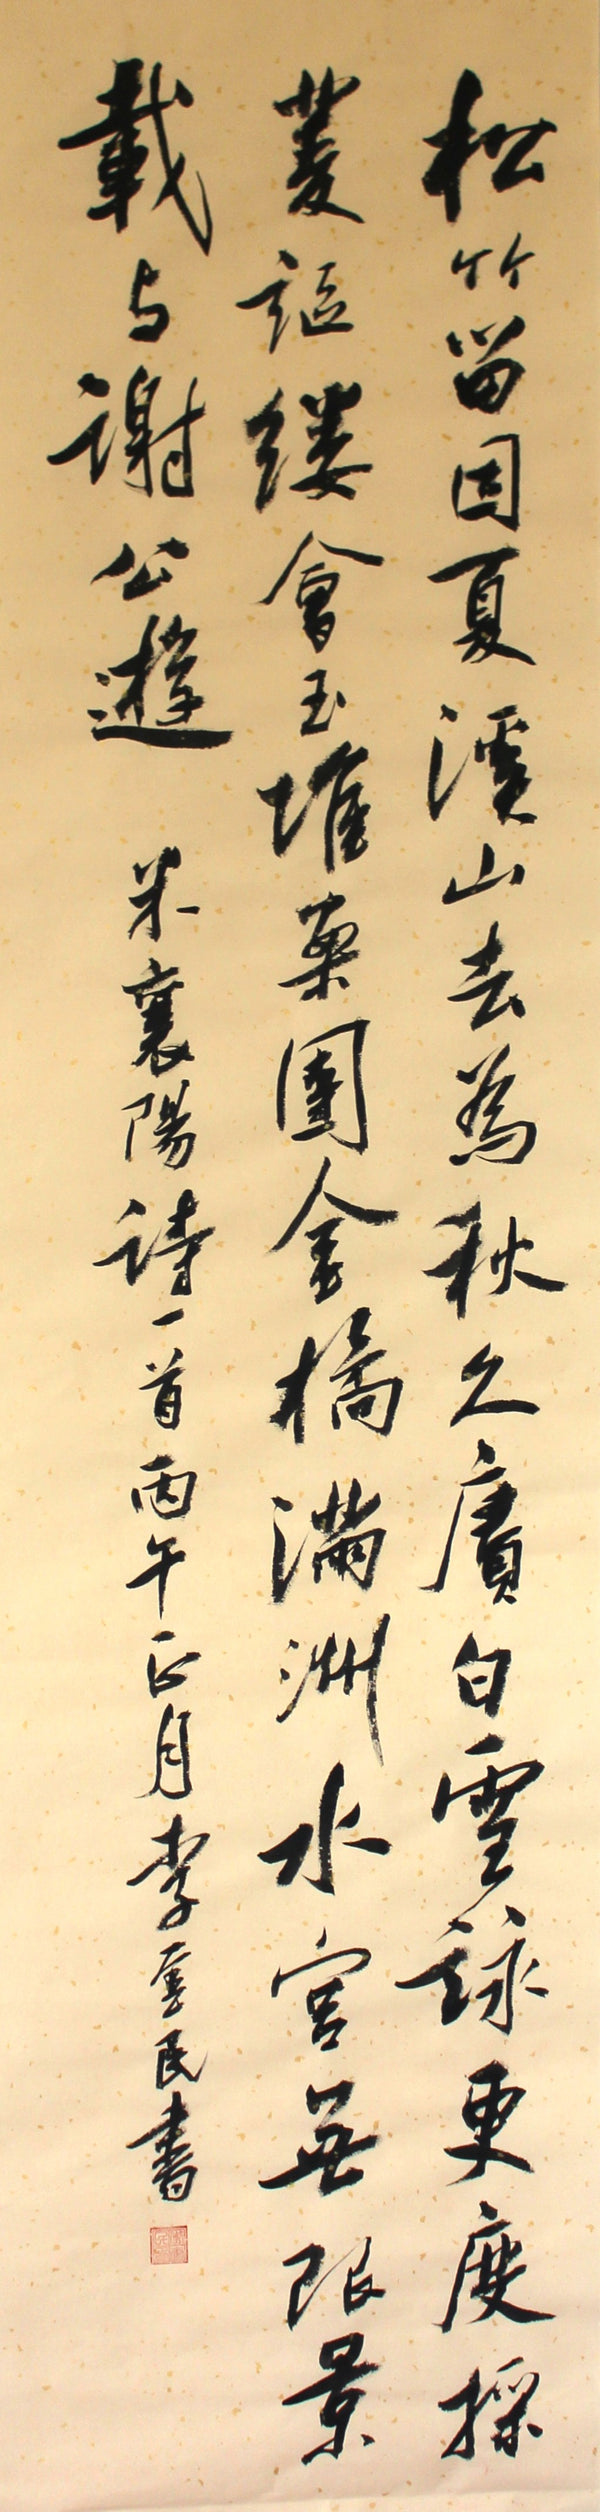 松竹留因夏溪山去為秋久賡白雪詠更度採
菱謳縷會玉堆案團金橘滿洲水宮無限景
載与謝公遊 米襄陽詩一首丙午正月李民書